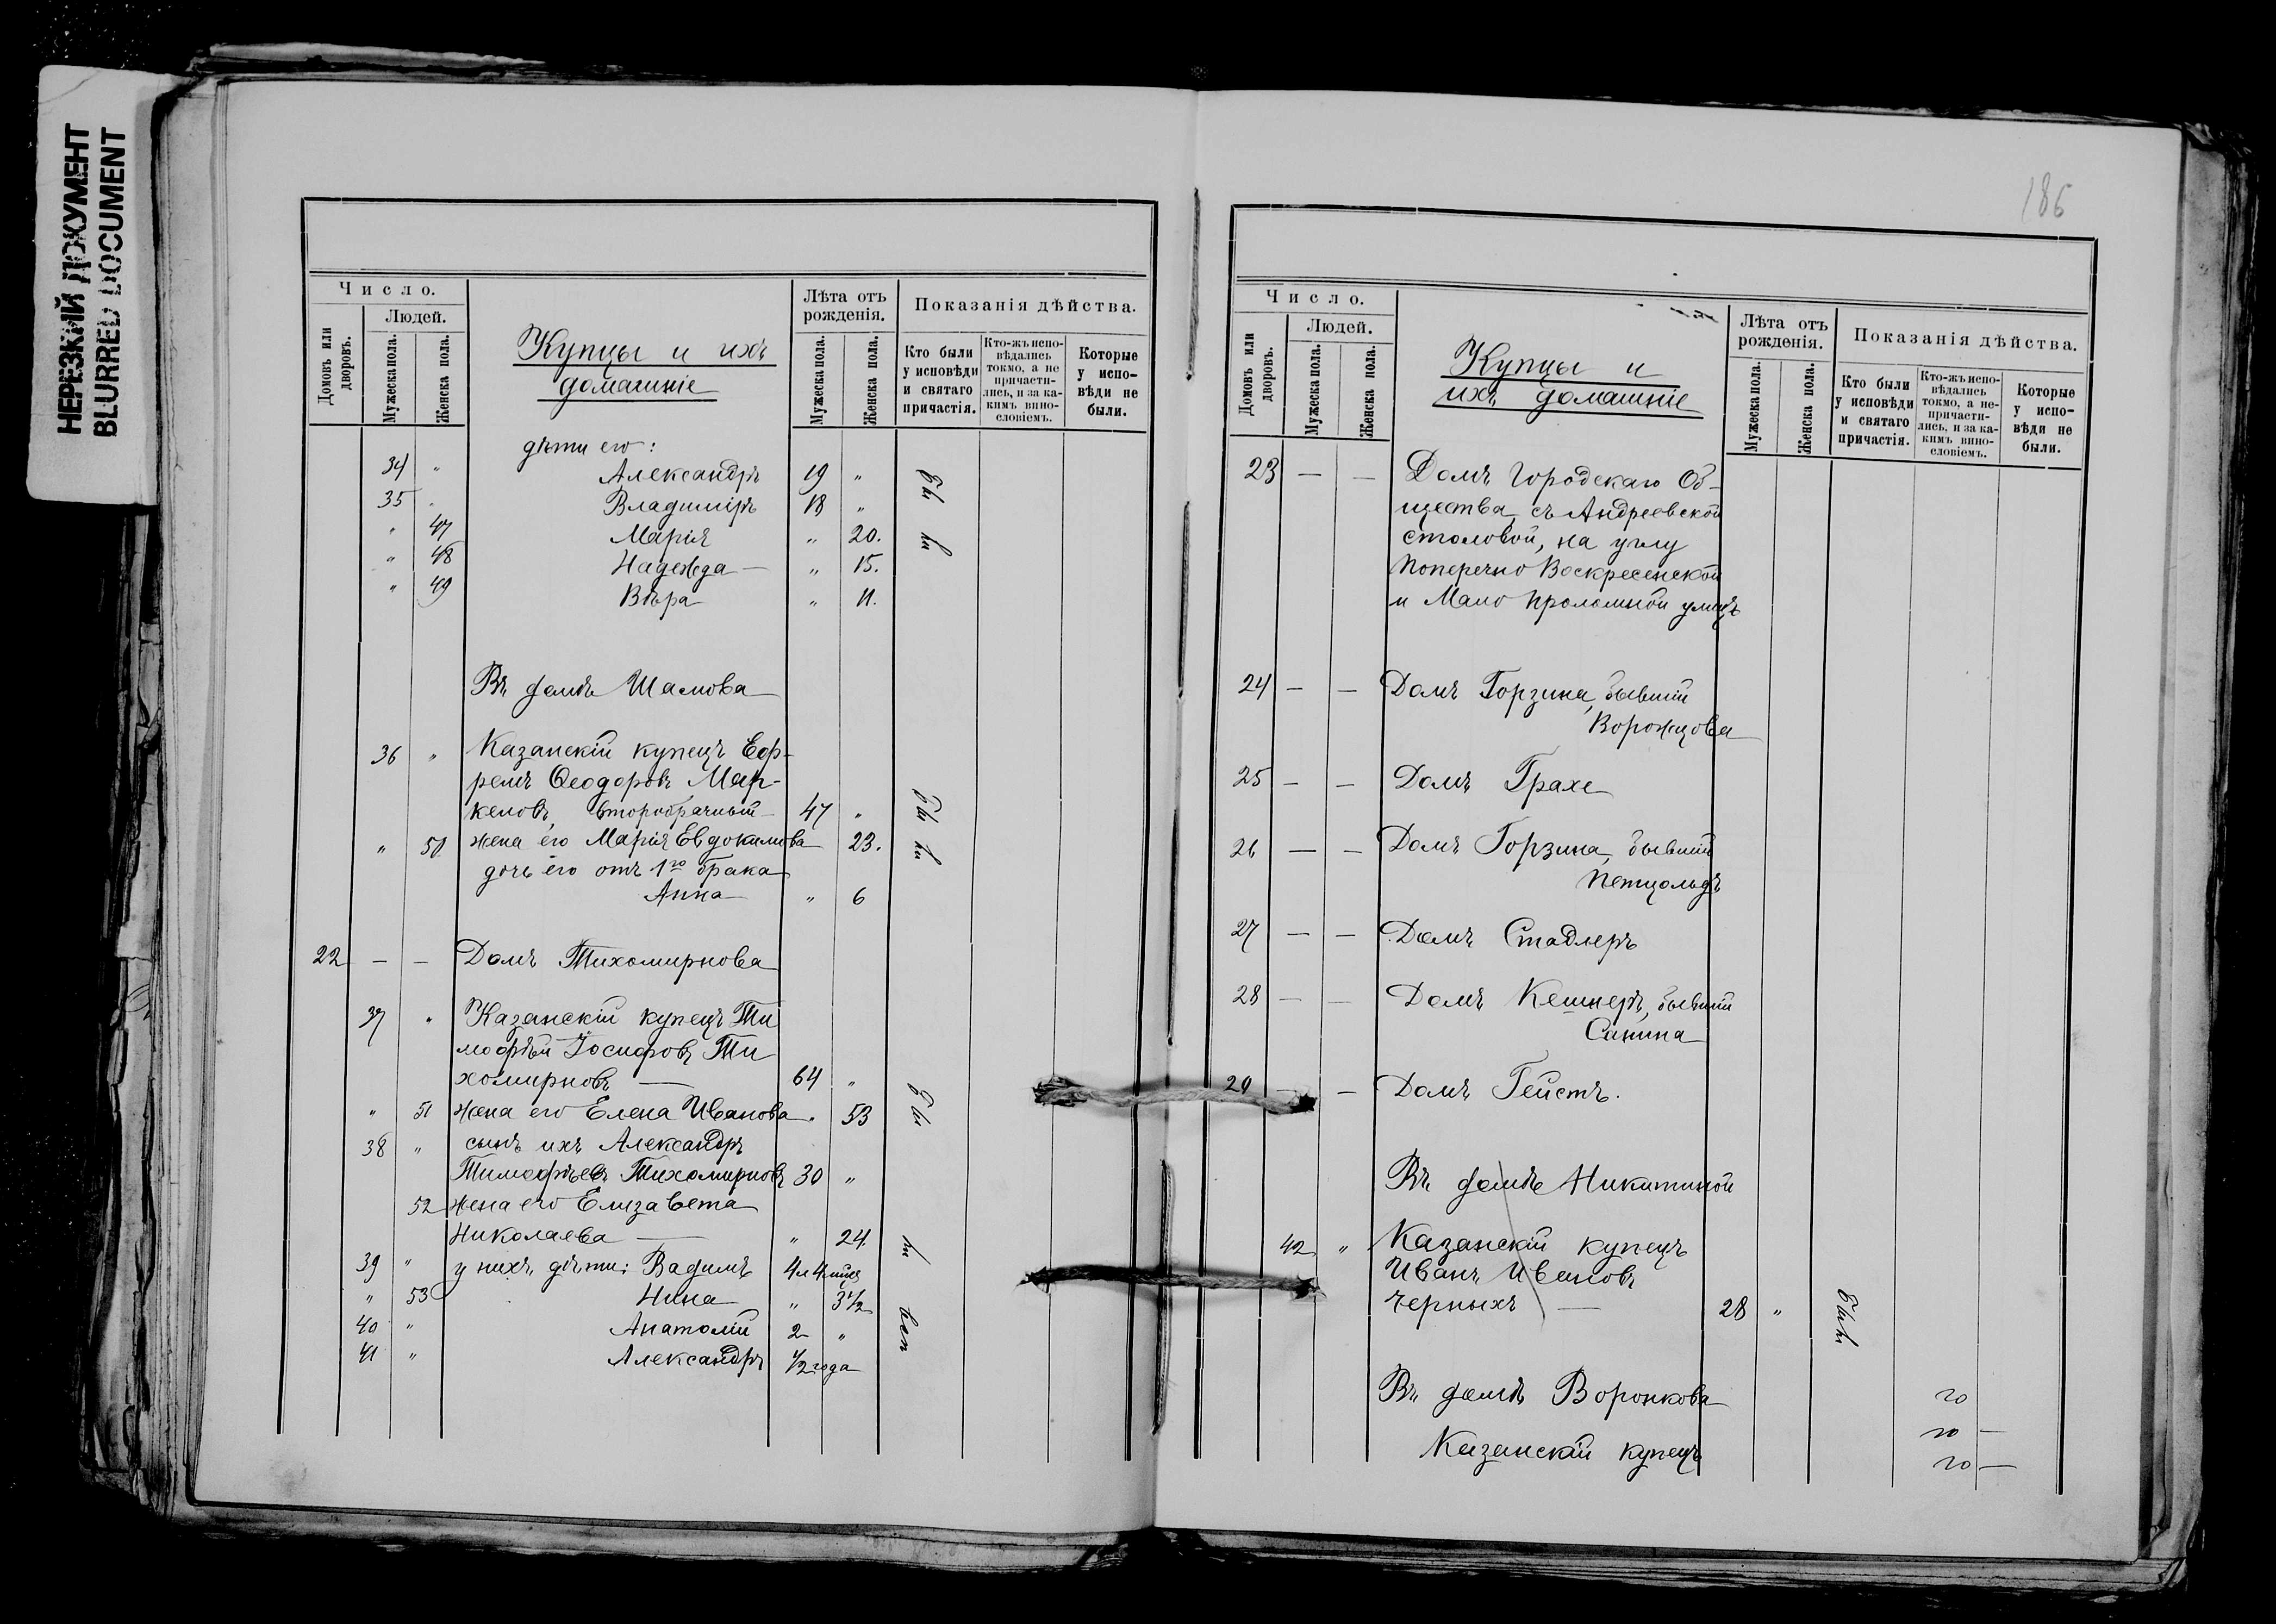 НЕРЕЗКИЙ ДОКУМЕНТ
BLURRED DOCUMENT
Число.
Людей.
Домовъ или дворовъ.
Мужеска пола.
Женска пола.
Купцы и ихъ
домашніе
Лѣта отъ рожденія.
Мужеска пола.
Женска пола.
Показанія дѣйства.
Кто были у исповѣди и святаго причастія.
Кто-жъ испо-вѣдались токмо, а не причасти-лись, и за ка-кимъ вино-словіемъ.
Которые у испо-вѣди не были.
дѣти его:
34 " Александръ 19 "
35 " Владиміръ 18 "
" 47 Марія " 20.
" 48 Надежда — " 15.
" 49 Вѣра " 11.
Въ домѣ Шамова
36 " Казанскій купецъ Еф-
ремъ Ѳеодоровъ Мар-
келовъ, второбрачный 47 "
" 50 жена его Марія Евдокимова 23.
дочь его отъ 1го брака
Анна " 6
22 — — Домъ Тихомирнова
37 " Казанскій купецъ Ти
мофѣй Іосифовъ Ти
хомирновъ — 64 "
" 51 жена его Елена Иванова . 53
38 " сынъ ихъ Александръ
Тимофѣевъ Тихомирновъ 30 "
52 жена его Елизавета
Николаева — " 24.
39 " у нихъ дѣти: Вадимъ
" 53 Нина " 3½
40 " Анатолій 2 "
41 " Александръ ½ года
Были
Были
Были
186
Число.
Людей.
Домовъ или дворовъ.
Мужеска пола.
Женска пола.
Купцы и
ихъ домашніе
Лѣта отъ рожденія.
Мужеска пола.
Женска пола.
Показанія дѣйства.
Кто были у исповѣди и святаго причастія.
Кто-жъ испо-вѣдались токмо, а не-причасти-лись, и за ка-кимъ вино-словіемъ.
Которые у испо-вѣди не были.
23 — — Домъ Городскаго Об-
щества, съ Андреевской
столовой, на углу
Поперечно Воскресенской
и Мало Проломной улицъ
24 — — Домъ Горзина, бывшій
Ворожцова
25 — — Домъ Грахе
26 — — Домъ Горзина, бывшій
Петцольдъ
27 — — Домъ Стадлеръ
28 — — Домъ Кешнеръ, бывшій
Санина
29 — — Домъ Гейстъ.
Въ домѣ Никитиной
42 " Казанскій купецъ
Иванъ Ивановъ
Черныхъ — 28 "
Въ домѣ Воронкова
Казанскій купецъ